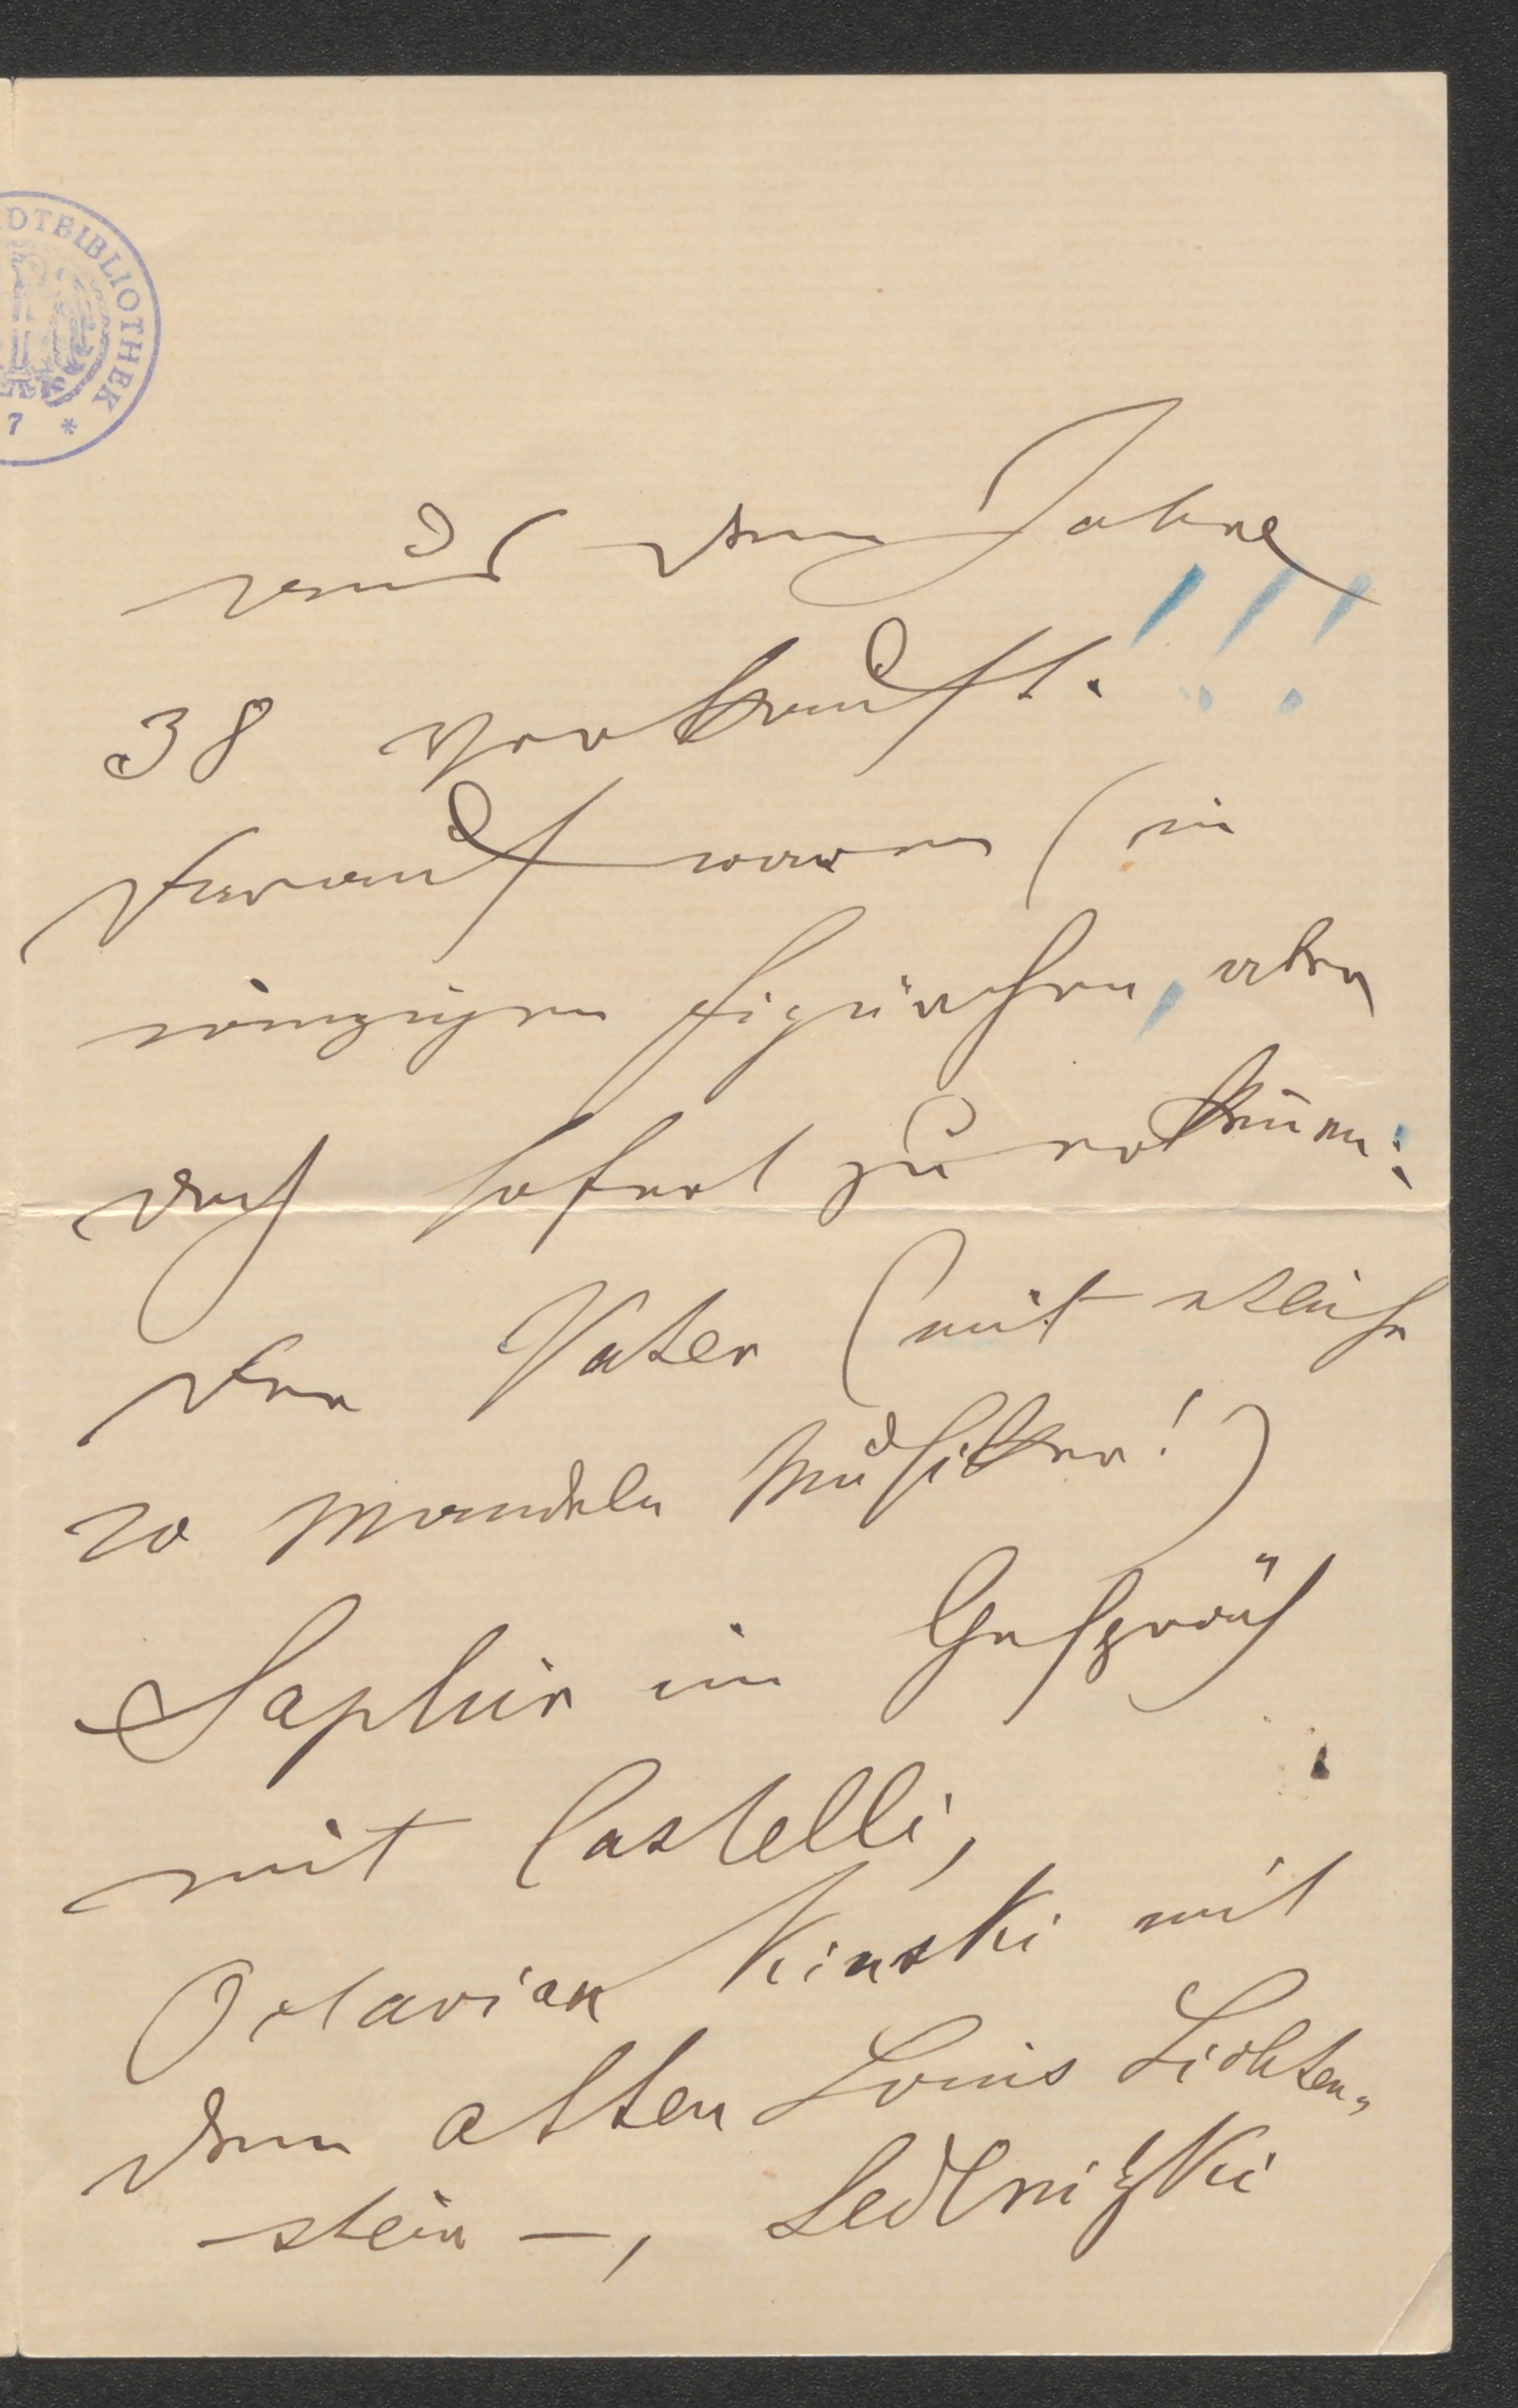 DTBIBLIOTHEK
7 *
aus dem Jahre
38 verkauft.!!!
Darauf waren (in
winzigen Figürchen, aber
doch sofort zu erkennen:
der Vater (mit
20 Mandeln Musiker!)
Saphir im Gespräch
mit Castelli,
Octavian Kinski mit
dem alten Louis Lichten„
stein –, Sedlnitzki